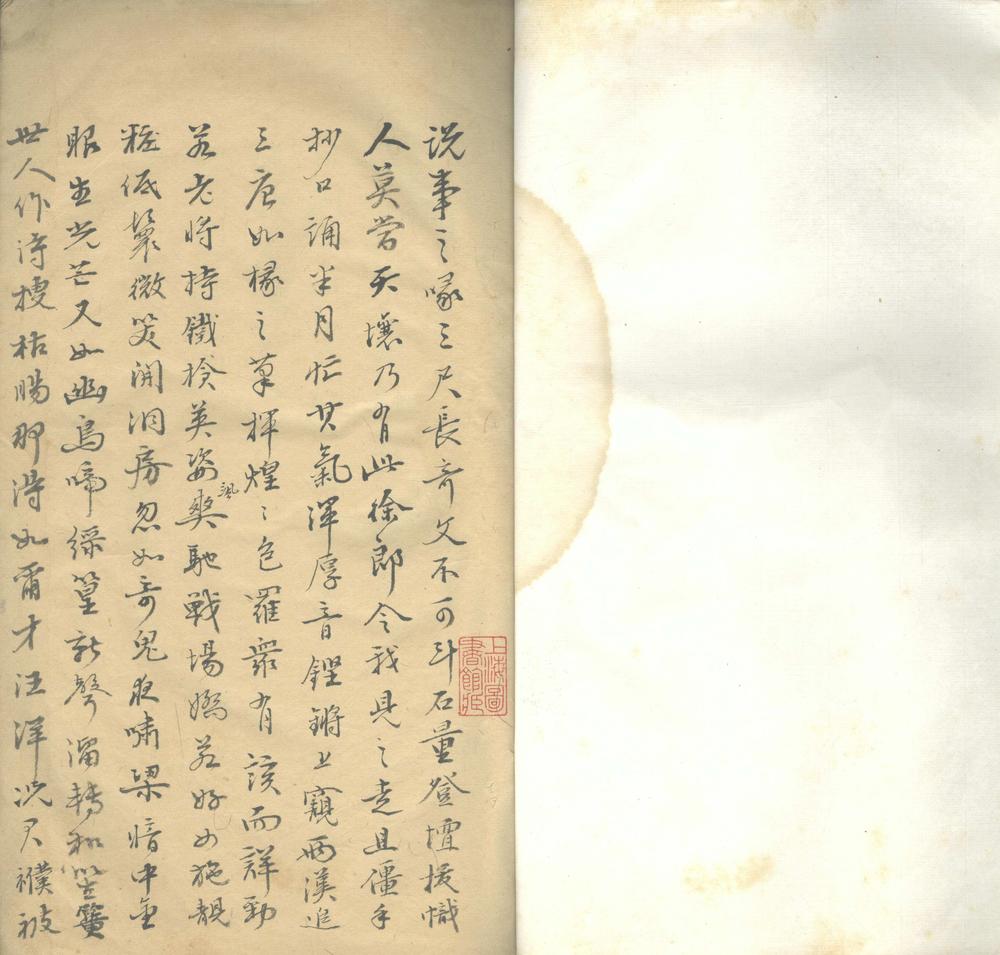 说事之喙三尺長奇文不可斗石量登壇拔幟
人莫當天壤乃有此徐郎令我見之走且僵手
抄口誦半月忙其氣渾厚音鏗鏘上窺兩漢追
三唐如椽之筆揮煌〻包羅眾有該而詳勁
若老將持鐵槍英姿颯爽馳戰場嬌若好女施靚
粧低鬟微笑開洞房忽如奇鬼夜嘯梁暗中金
眼生光芒又如幽鳥啼綠篁新聲溜轉和笙簧
世人作詩搜枯腸那得如爾才汪洋況君襆被
上海圖
書館藏